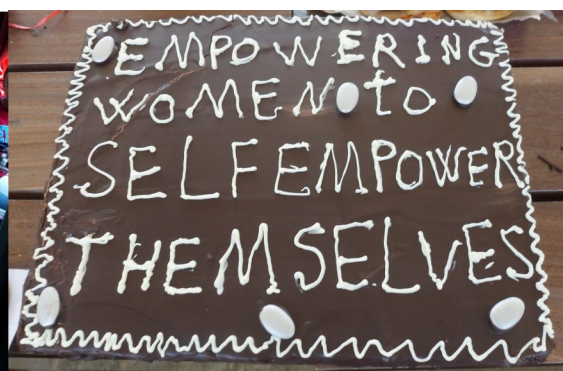 EMPOWERING
WOMEN to
SELF EMPOWER
THEMSELVES